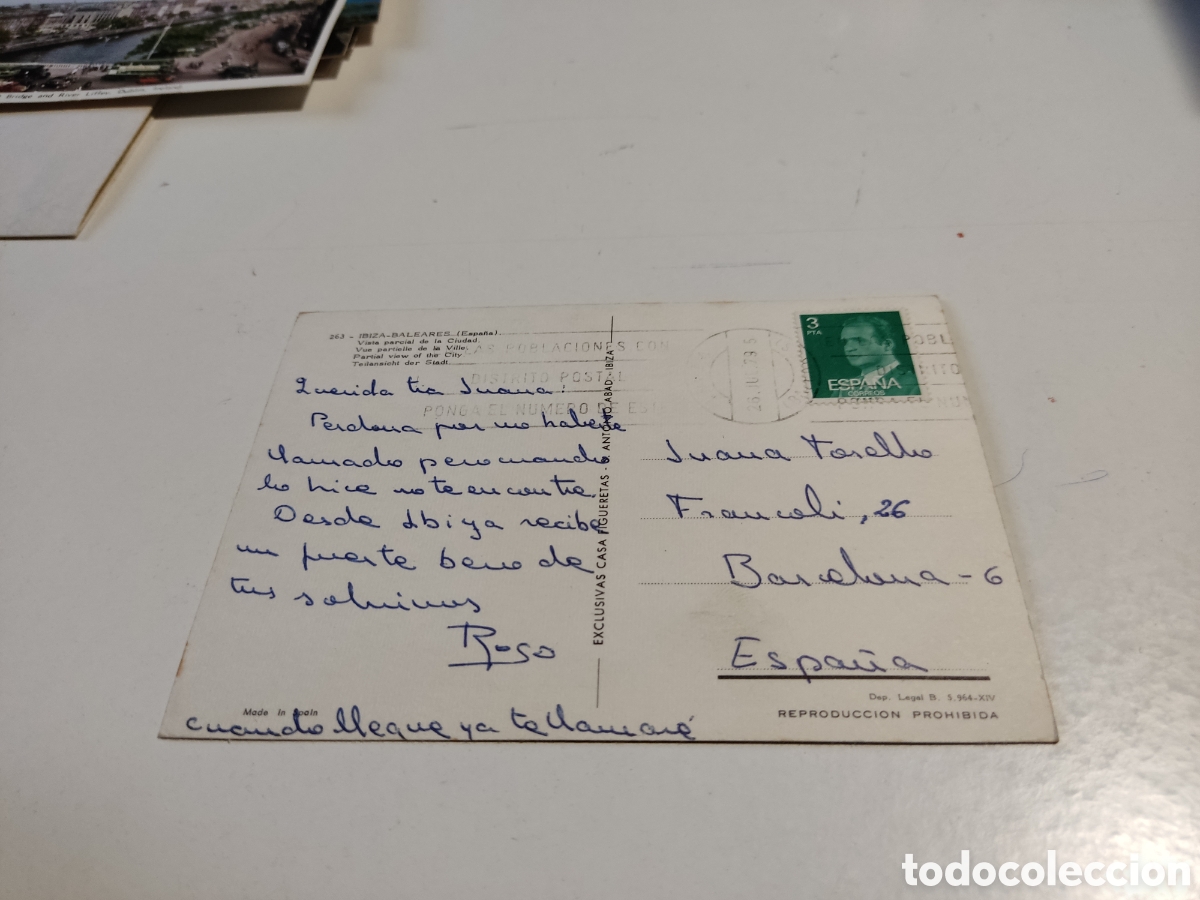 Bridge and River Liffey, Dublin, Ireland
263 - IBIZA-BALEARES (España).
Vista parcial de la Ciudad.
Vue partielle de la Ville.
Partial view of the City.
Teilansicht der Stadt.
POBLACIONES CON
DISTRITO POSTAL
PONGA EL NUMERO DE ESTE
3
PTA
ESPAÑA
CORREOS
Querida tia Juana:
Perdona por no haberte
llamado pero cuando
lo hice no te encontre.
Desde Ibiza recibe
un fuerte beso de
tus sobrinos
Rosa
cuando llegue ya te llamaré
EXCLUSIVAS CASA FIGUERETAS - D. ANTONIO ABAD - IBIZA
Juana
Francoli, 26
Barcelona - 6
España
Made in Spain
Dep. Legal B. 5.964-XIV
REPRODUCCION PROHIBIDA
todocoleccion